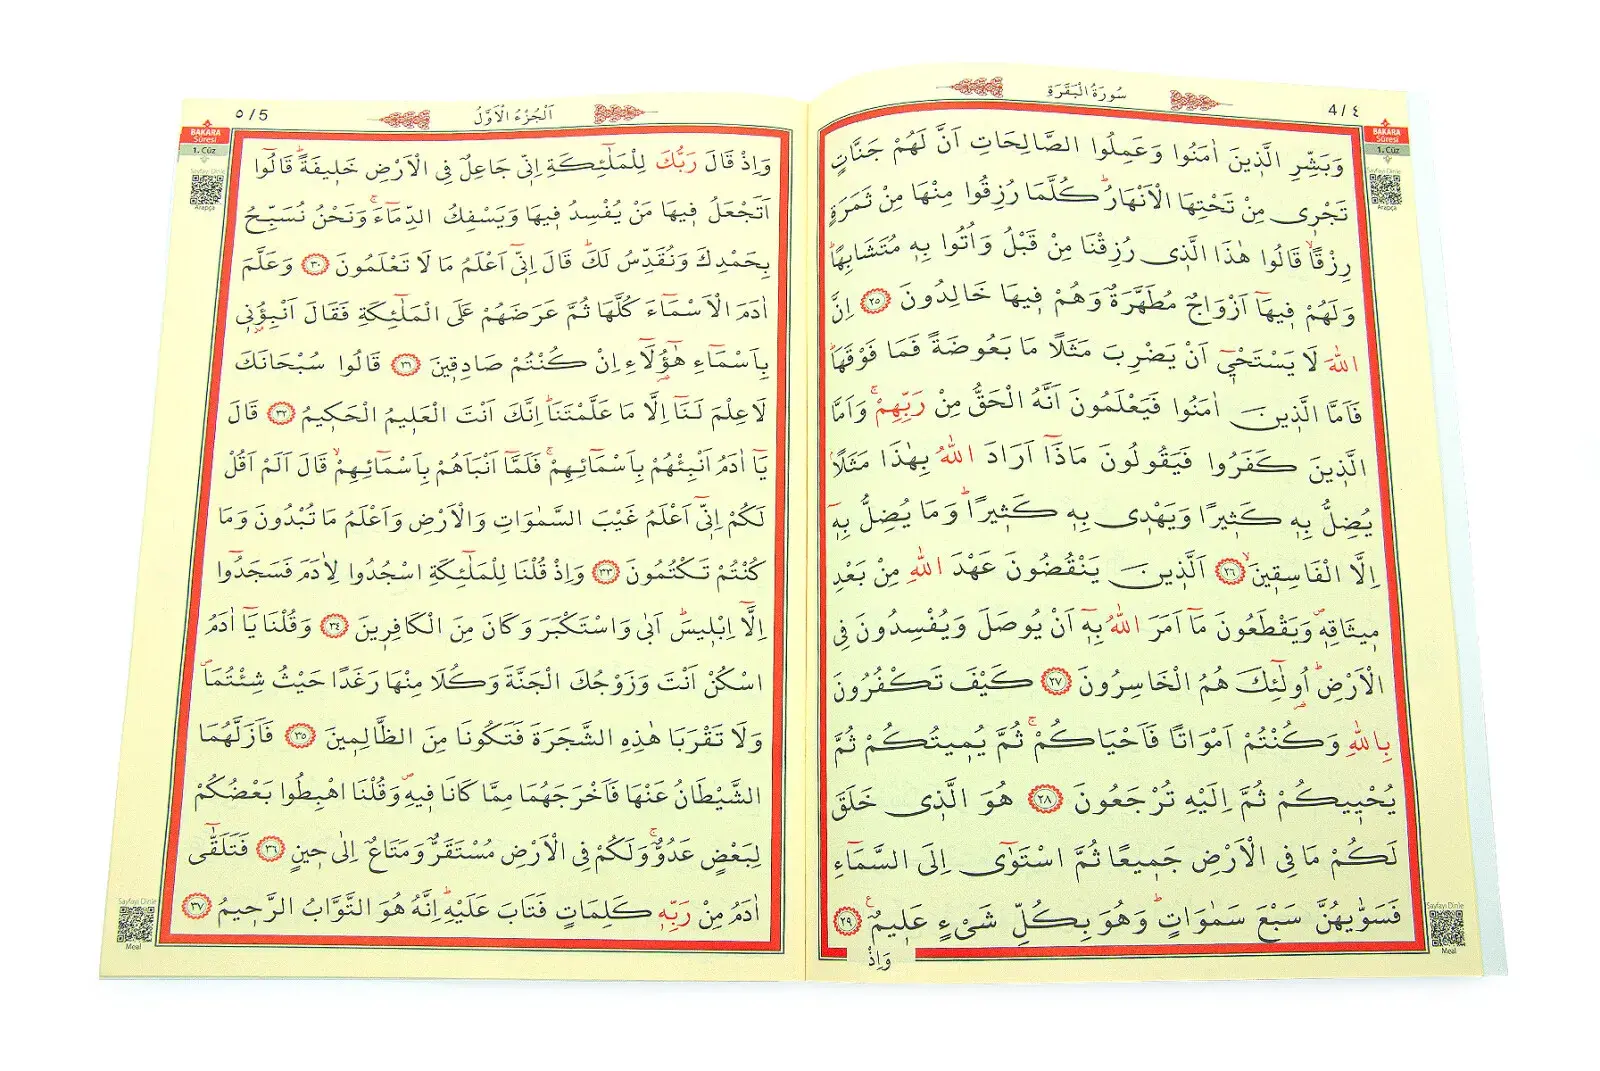 4 / ٤
سُورَةُ الْبَقَرَةِ
BAKARA
Sûresi
1. Cüz
Sayfayı Dinle
Arapça
وَبَشِّرِ الَّذٖينَ اٰمَنُوا وَعَمِلُوا الصَّالِحَاتِ اَنَّ لَهُمْ جَنَّاتٍ
تَجْرٖى مِنْ تَحْتِهَا الْاَنْهَارُۜ كُلَّمَا رُزِقُوا مِنْهَا مِنْ ثَمَرَةٍ
رِزْقًاۙ قَالُوا هٰذَا الَّذٖى رُزِقْنَا مِنْ قَبْلُ وَاُتُوا بِهٖ مُتَشَابِهًاۜ
وَلَهُمْ فٖيهَٓا اَزْوَاجٌ مُطَهَّرَةٌ وَهُمْ فٖيهَا خَالِدُونَ ﴿٢٥﴾ اِنَّ
اللّٰهَ لَا يَسْتَحْيٖٓ اَنْ يَضْرِبَ مَثَلًا مَا بَعُوضَةً فَمَا فَوْقَهَاۜ
فَاَمَّا الَّذٖينَ اٰمَنُوا فَيَعْلَمُونَ اَنَّهُ الْحَقُّ مِنْ رَبِّهِمْۚ وَاَمَّا
الَّذٖينَ كَفَرُوا فَيَقُولُونَ مَاذَٓا اَرَادَ اللّٰهُ بِهٰذَا مَثَلًاۘ
يُضِلُّ بِهٖ كَثٖيرًا وَيَهْدٖى بِهٖ كَثٖيرًاۜ وَمَا يُضِلُّ بِهٖٓ
اِلَّا الْفَاسِقٖينَۙ ﴿٢٦﴾ اَلَّذٖينَ يَنْقُضُونَ عَهْدَ اللّٰهِ مِنْ بَعْدِ
مٖيثَاقِهٖࣕ وَيَقْطَعُونَ مَٓا اَمَرَ اللّٰهُ بِهٖٓ اَنْ يُوصَلَ وَيُفْسِدُونَ فِى
الْاَرْضِۜ اُولٰٓئِكَ هُمُ الْخَاسِرُونَ ﴿٢٧﴾ كَيْفَ تَكْفُرُونَ
بِاللّٰهِ وَكُنْتُمْ اَمْوَاتًا فَاَحْيَاكُمْۚ ثُمَّ يُمٖيتُكُمْ ثُمَّ
يُحْيٖيكُمْ ثُمَّ اِلَيْهِ تُرْجَعُونَ ﴿٢٨﴾ هُوَ الَّذٖى خَلَقَ
لَكُمْ مَا فِى الْاَرْضِ جَمٖيعًا ثُمَّ اسْتَوٰٓى اِلَى السَّمَٓاءِ
فَسَوّٰيهُنَّ سَبْعَ سَمٰوَاتٍۜ وَهُوَ بِكُلِّ شَیْءٍ عَلٖيمٌ ﴿٢٩﴾
وَاِذْ
Sayfayı Dinle
Meal
٥ / 5
اَلْجُزْءُ الْاَوَّلُ
BAKARA
Sûresi
1. Cüz
Sayfayı Dinle
Arapça
وَاِذْ قَالَ رَبُّكَ لِلْمَلٰٓئِكَةِ اِنّٖى جَاعِلٌ فِى الْاَرْضِ خَلٖيفَةًۜ قَالُٓوا
اَتَجْعَلُ فٖيهَا مَنْ يُفْسِدُ فٖيهَا وَيَسْفِكُ الدِّمَٓاءَۚ وَنَحْنُ نُسَبِّحُ
بِحَمْدِكَ وَنُقَدِّسُ لَكَۜ قَالَ اِنّٖٓى اَعْلَمُ مَا لَا تَعْلَمُونَ ﴿٣٠﴾ وَعَلَّمَ
اٰدَمَ الْاَسْمَٓاءَ كُلَّهَا ثُمَّ عَرَضَهُمْ عَلَى الْمَلٰٓئِكَةِ فَقَالَ اَنْبِؤُ۫نٖى
بِاَسْمَٓاءِ هٰٓؤُ۬لَٓاءِ اِنْ كُنْتُمْ صَادِقٖينَ ﴿٣١﴾ قَالُوا سُبْحَانَكَ
لَا عِلْمَ لَنَٓا اِلَّا مَا عَلَّمْتَنَاۜ اِنَّكَ اَنْتَ الْعَلٖيمُ الْحَكٖيمُ ﴿٣٢﴾ قَالَ
يَٓا اٰدَمُ اَنْبِئْهُمْ بِاَسْمَٓائِهِمْۚ فَلَمَّٓا اَنْبَاَهُمْ بِاَسْمَٓائِهِمْۙ قَالَ اَلَمْ اَقُلْ
لَكُمْ اِنّٖٓى اَعْلَمُ غَيْبَ السَّمٰوَاتِ وَالْاَرْضِ وَاَعْلَمُ مَا تُبْدُونَ وَمَا
كُنْتُمْ تَكْتُمُونَ ﴿٣٣﴾ وَاِذْ قُلْنَا لِلْمَلٰٓئِكَةِ اسْجُدُوا لِاٰدَمَ فَسَجَدُٓوا
اِلَّٓا اِبْلٖيسَۜ اَبٰى وَاسْتَكْبَرَ وَكَانَ مِنَ الْكَافِرٖينَ ﴿٣٤﴾ وَقُلْنَا يَٓا اٰدَمُ
اسْكُنْ اَنْتَ وَزَوْجُكَ الْجَنَّةَ وَكُلَا مِنْهَا رَغَدًا حَيْثُ شِئْتُمَاࣕ
وَلَا تَقْرَبَا هٰذِهِ الشَّجَرَةَ فَتَكُونَا مِنَ الظَّالِمٖينَ ﴿٣٥﴾ فَاَزَلَّهُمَا
الشَّيْطَانُ عَنْهَا فَاَخْرَجَهُمَا مِمَّا كَانَا فٖيهِࣕ وَقُلْنَا اهْبِطُوا بَعْضُكُمْ
لِبَعْضٍ عَدُوٌّۚ وَلَكُمْ فِى الْاَرْضِ مُسْتَقَرٌّ وَمَتَاعٌ اِلٰى حٖينٍ ﴿٣٦﴾ فَتَلَقّٰٓى
اٰدَمُ مِنْ رَبِّهٖ كَلِمَاتٍ فَتَابَ عَلَيْهِۜ اِنَّهُ هُوَ التَّوَّابُ الرَّحٖيمُ ﴿٣٧﴾
Sayfayı Dinle
Meal